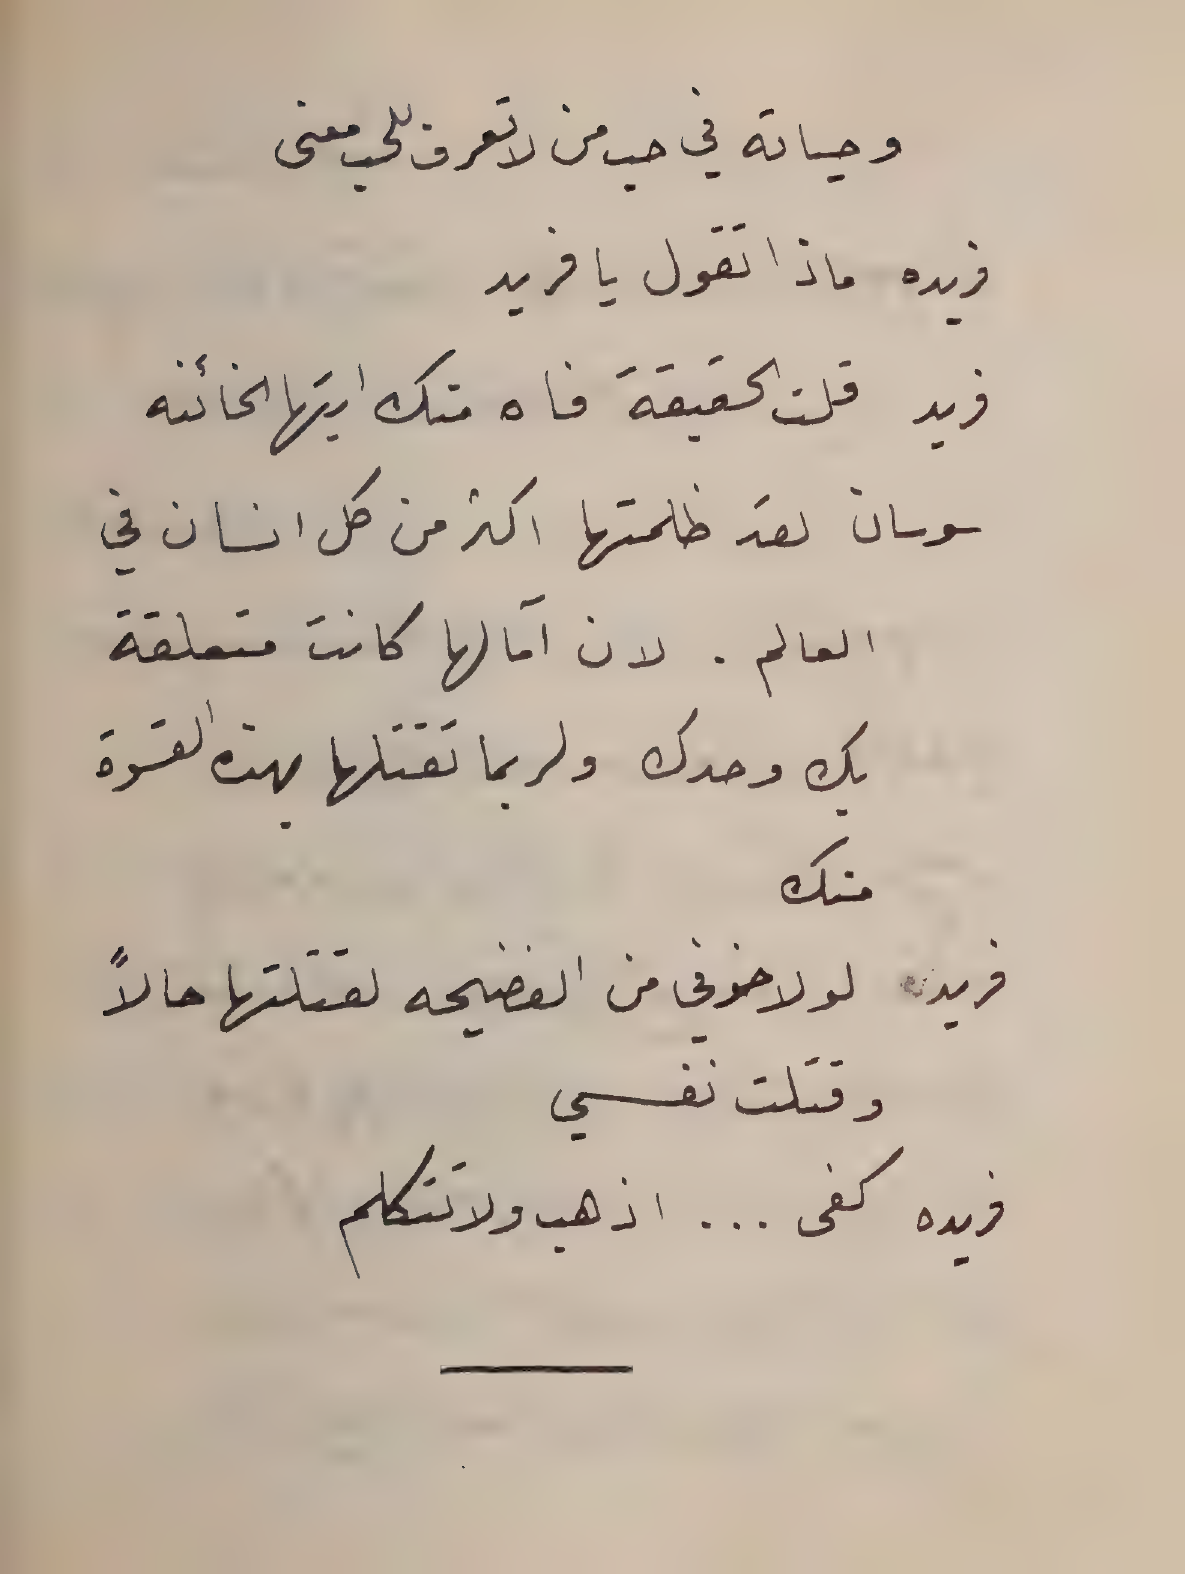 وحياته في حب من لا تعرف للحب معنى
فريده ماذا تقول يا فريد
فريد قلت الحقيقة فاه منك ايتها الخائنه
سوسان لقد ظلمتها اكثر من كل انسان في
العالم . لان آمالها كانت متعلقة
بك وحدك ولربما تقتلها بهذه القسوة
منك
فريد لولا خوفي من الفضيحه لقتلتها حالاً
وقتلت نفسي
فريده كفى ... اذهب ولا تتكلم